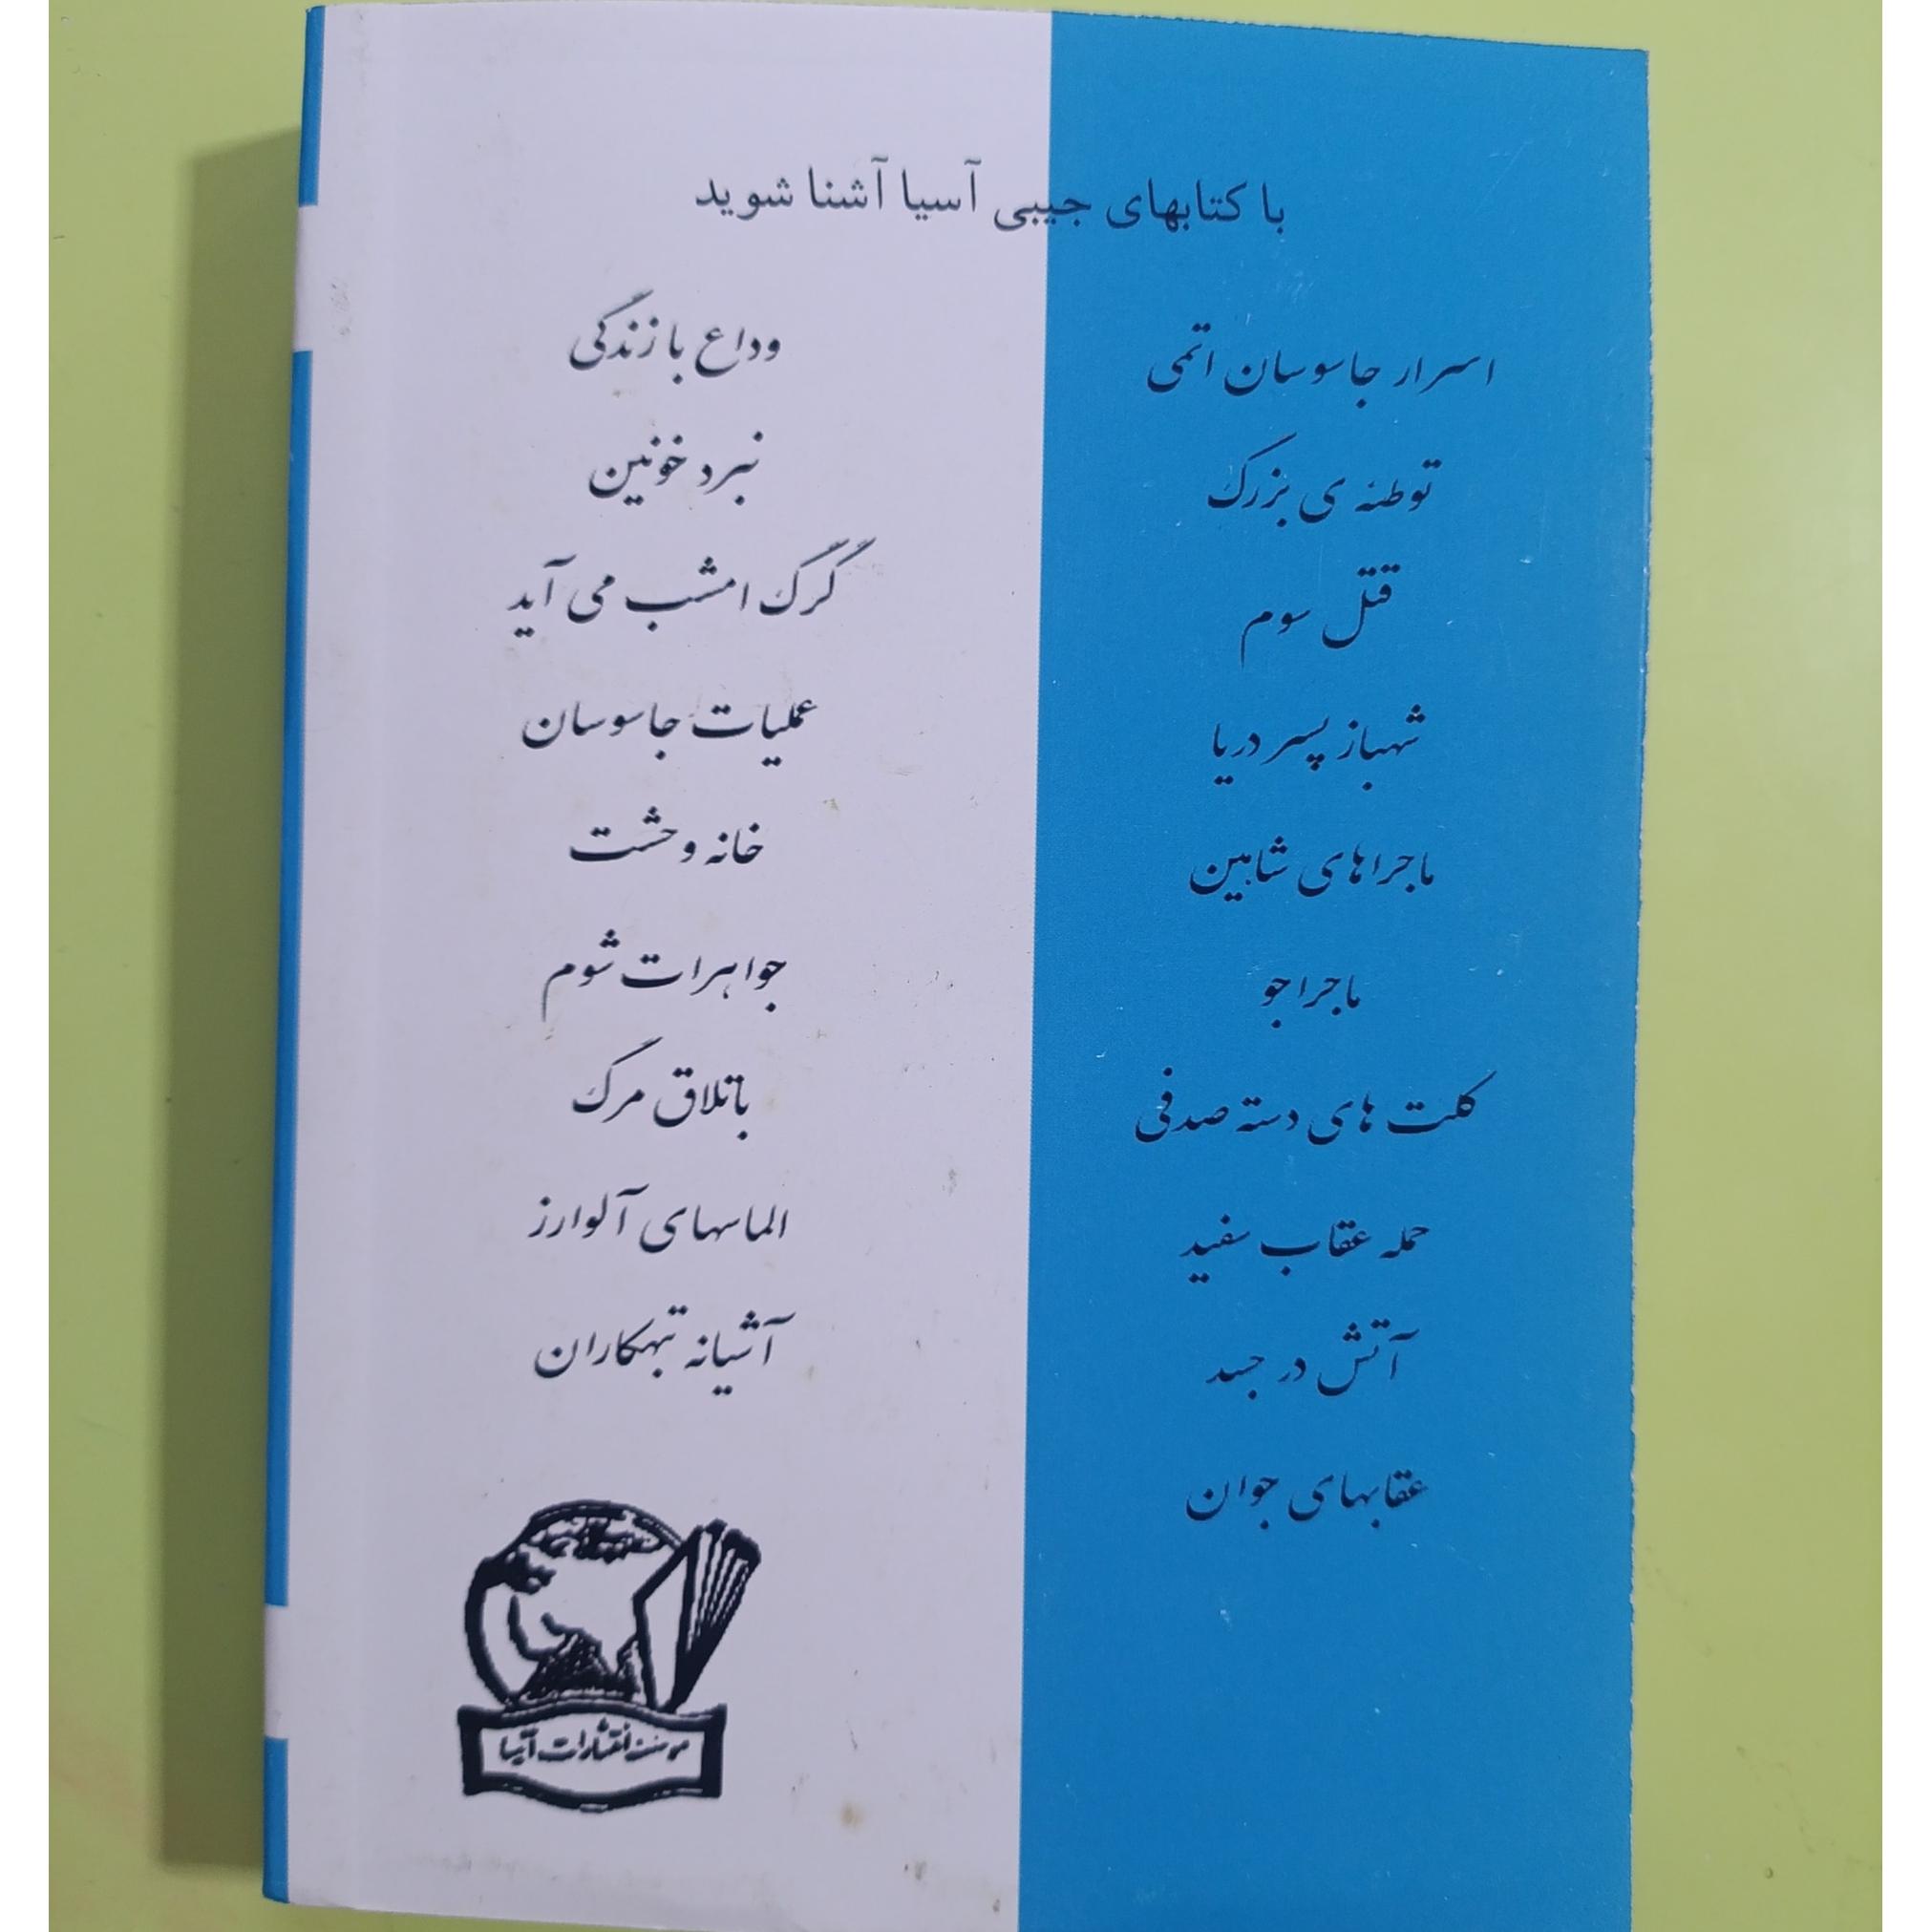 با کتابهای جیبی آسیا آشنا شوید
اسرار جاسوسان اتمی
توطئه ی بزرگ
قتل سوم
شهباز پسر دریا
ماجراهای شاهین
ماجراجو
کلت های دسته صدفی
حمله عقاب سفید
آتش در جسد
عقابهای جوان
وداع با زندگی
نبرد خونین
گرگ امشب می آید
عملیات جاسوسان
خانه وحشت
جواهرات شوم
باتلاق مرگ
الماسهای آلوارز
آشیانه تبهکاران
موسسه انتشارات آسیا